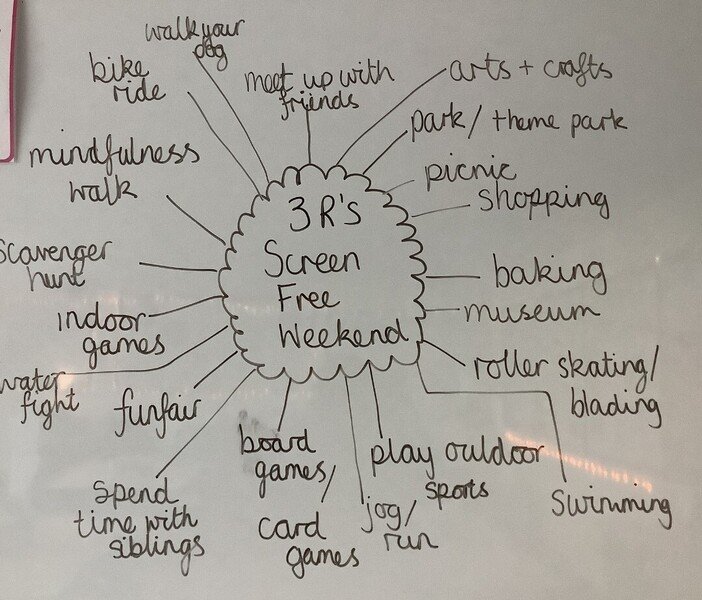 3 R'S
Screen
Free
Weekend
walk your
dog
meet up with
friends
arts + crafts
park/ theme park
picnic
shopping
baking
museum
roller skating/
blading
swimming
play ouldoor
sports
jog/
run
board
games/
card
games
spend
time with
siblings
funfair
water
fight
indoor
games
Scavenger
hunt
mindfulness
walk
bike
ride